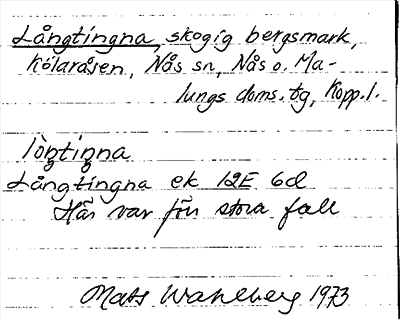 Långtingna, skogig bergsmark,
Kölaråsen, Nås sn, Nås o. Ma-
lungs doms. tg, Kopp. l.
lòŋtiŋna
Långtingna ek 12E 6d
Här var förr stora fall
Mats Wahlberg 1973